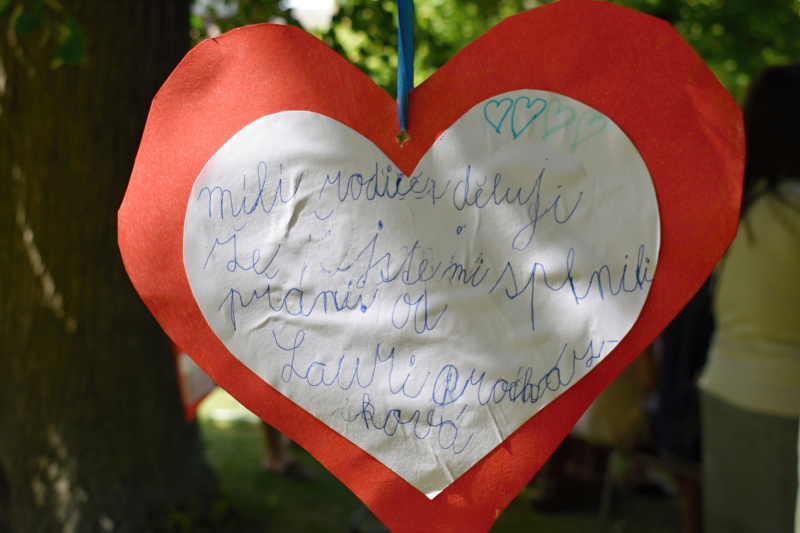 milí rodiče děkuji
že jste mi splnili
přání. od
Lauri Procház-
ková